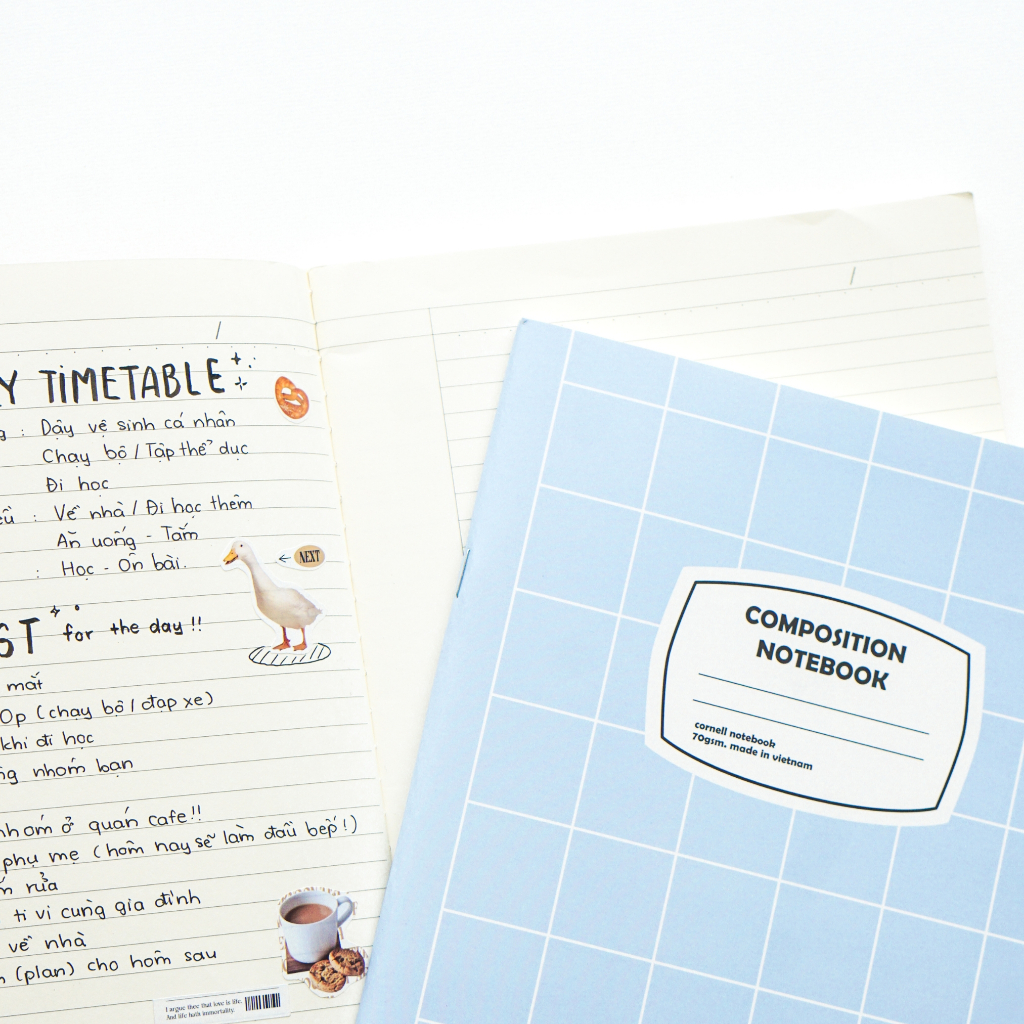 Y TIMETABLE
g : Dậy vệ sinh cá nhân
Chạy bộ / Tập thể dục
Đi học
ều : Về nhà / Đi học thêm
Ăn uống - Tắm
: Học - Ôn bài.
NEXT
ST for the day !!
mắt
op (chạy bộ / đạp xe)
khi đi học
ng nhóm bạn
nhóm ở quán cafe!!
phụ mẹ (hôm nay sẽ làm đầu bếp!)
m rửa
ti vi cùng gia đình
về nhà
n (plan) cho hôm sau
I argue thee that love is life.
And life hath immortality.
COMPOSITION
NOTEBOOK
cornell notebook
70gsm. made in vietnam